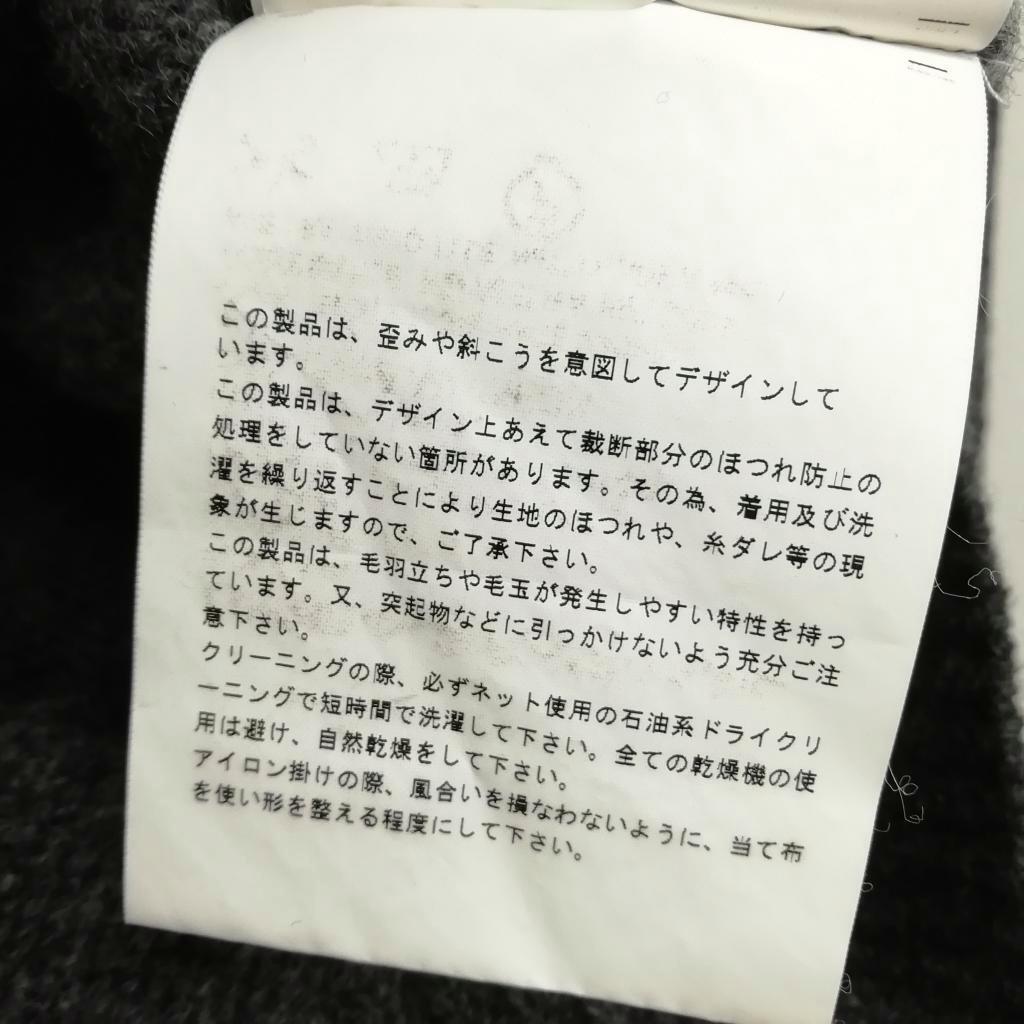 この製品は、歪みや斜こうを意図してデザインして
います。
この製品は、デザイン上あえて裁断部分のほつれ防止の
処理をしていない箇所があります。その為、着用及び洗
濯を繰り返すことにより生地のほつれや、糸ダレ等の現
象が生じますので、ご了承下さい。
この製品は、毛羽立ちや毛玉が発生しやすい特性を持っ
ています。又、突起物などに引っかけないよう充分ご注
意下さい。
クリーニングの際、必ずネット使用の石油系ドライクリ
ーニングで短時間で洗濯して下さい。全ての乾燥機の使
用は避け、自然乾燥をして下さい。
アイロン掛けの際、風合いを損なわないように、当て布
を使い形を整える程度にして下さい。